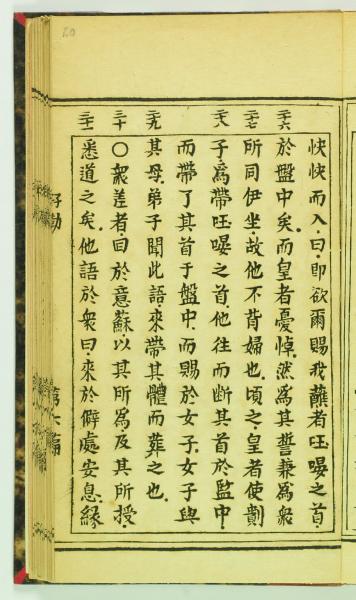 快快而入曰即欲爾賜我蘸者㕵㬫之首
二六
於盤中矣而皇者憂悼然為其誓兼為眾
二七
所同伊坐故他不背婦也頃之皇者使劊
二八
子為帶㕵㬫之首他往而斷其首於監中
而帶了其首于盤中而賜於女子女子與
二九
其母弟子聞此語來帶其體而葬之也
三十
○眾差者曰於意蘇以其所為及其所授
三一
悉道之矣他語於眾曰來於僻處安息緣
第六篇